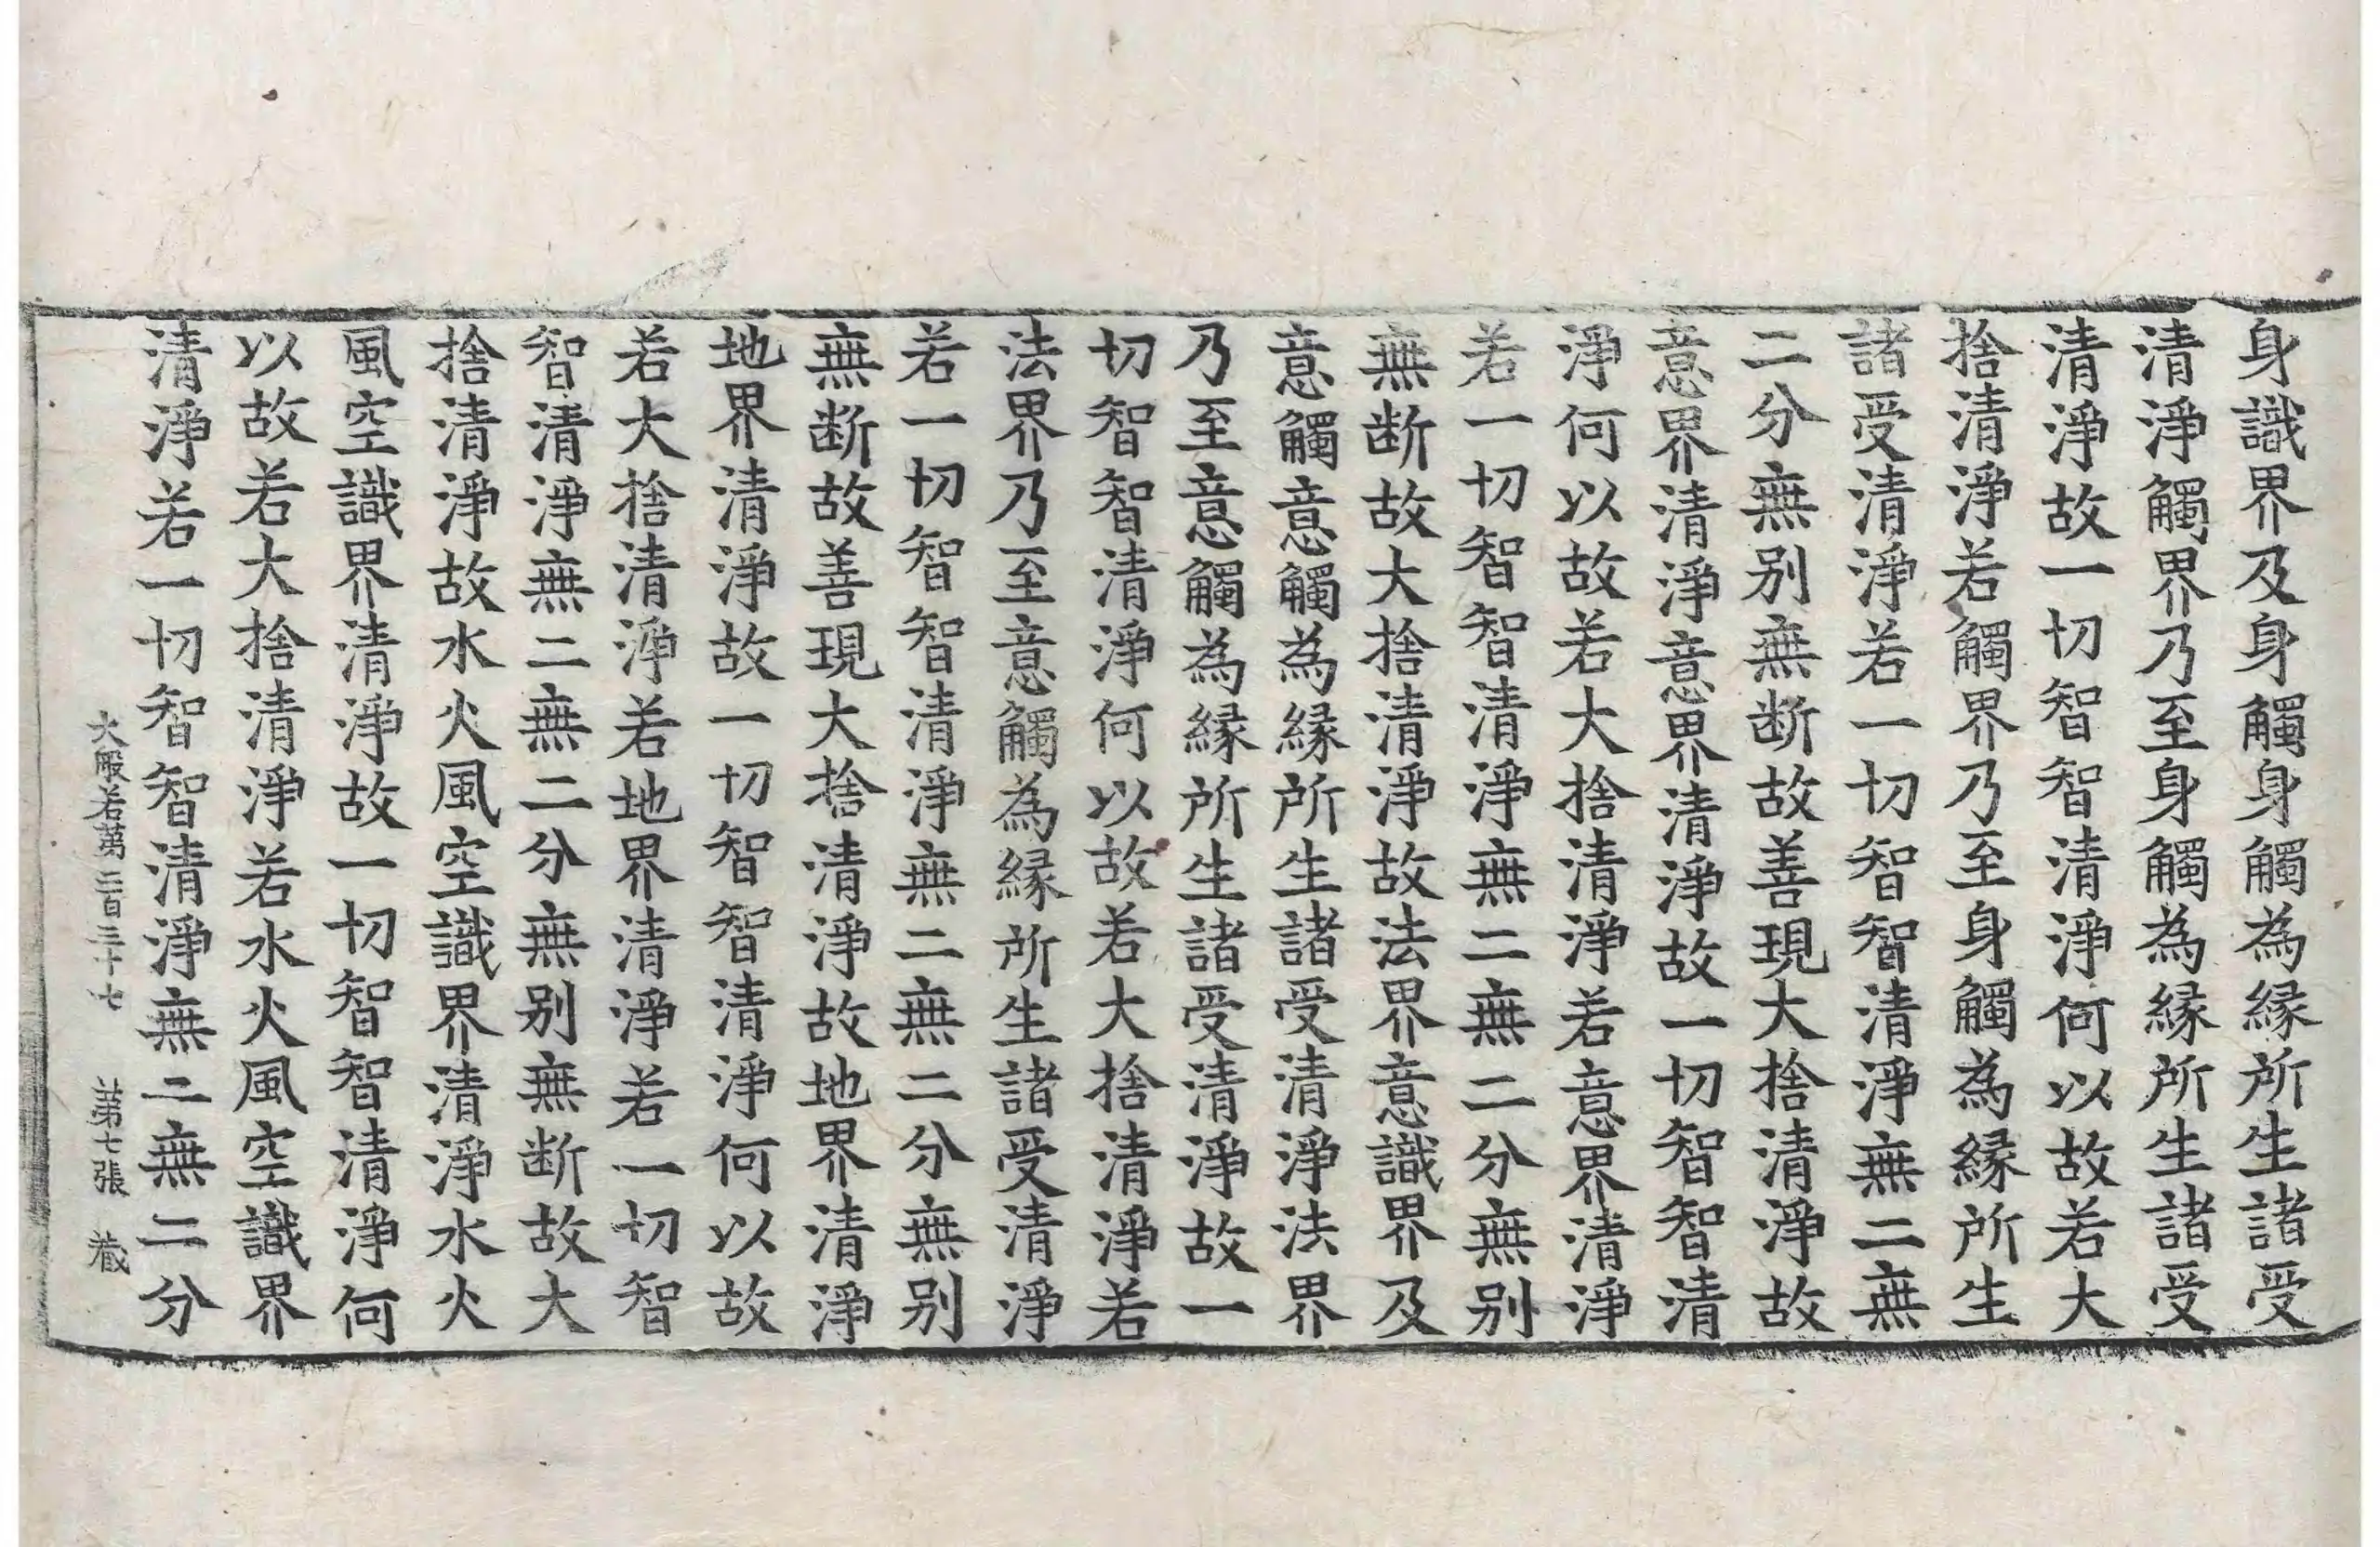 身識界及身觸身觸為縁所生諸受
清淨觸界乃至身觸為縁所生諸受
清淨故一切智智清淨何以故若大
捨清淨若觸界乃至身觸為縁所生
諸受清淨若一切智智清淨無二無
二分無别無断故善現大捨清淨故
意界清淨意界清淨故一切智智清
淨何以故若大捨清淨若意界清淨
若一切智智清淨無二無二分無别
無断故大捨清淨故法界意識界及
意觸意觸為縁所生諸受清淨法界
乃至意觸為縁所生諸受清淨故一
切智智清淨何以故若大捨清淨若
法界乃至意觸為縁所生諸受清淨
若一切智智清淨無二無二分無别
無断故善現大捨清淨故地界清淨
地界清淨故一切智智清淨何以故
若大捨清淨若地界清淨若一切智
智清淨無二無二分無别無断故大
捨清淨故水火風空識界清淨水火
風空識界清淨故一切智智清淨何
以故若大捨清淨若水火風空識界
清淨若一切智智清淨無二無二分
大般若第二百三十七 第七張 蔵